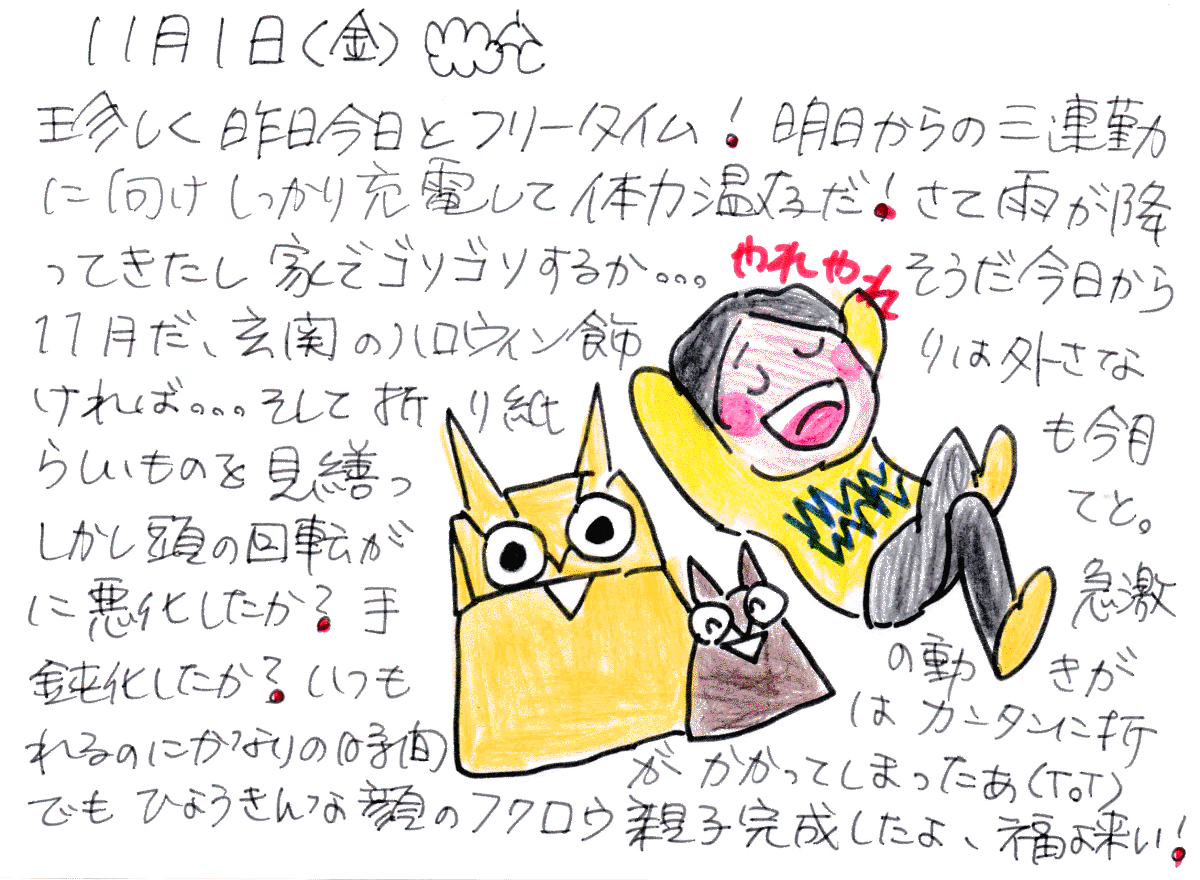 11月1日(金)
珍しく昨日今日とフリータイム!明日からの三連勤
に向けしっかり充電して体力温存だ!さて雨が降
ってきたし家でゴソゴソするか。。。そうだ今日から
やれやれ
11月だ、玄関のハロウィン飾りは外さな
ければ。。。そして折り紙も今月
らしいものを見繕ってと。
しかし頭の回転が急激
に悪化したか?手の動きが
鈍化したか?いつもはカンタンに折
れるのにかなりの時間がかかってしまったあ(T。T)
でもひょうきんな顔のフクロウ親子完成したよ、福よ来い!